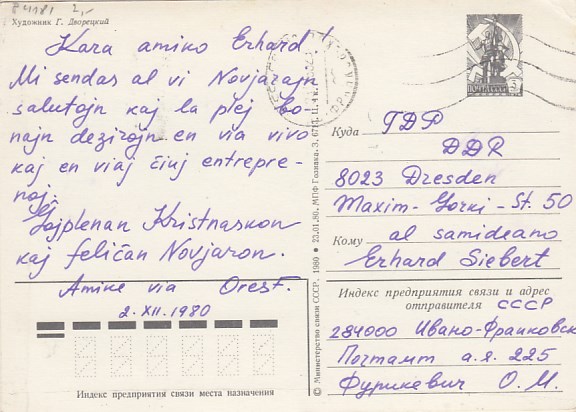 84181 2,-
Художник Г. Дворецкий
Kara amiko Erhard!
Mi sendas al vi Novjarajn
salutojn kaj la plej bo-
najn dezirojn en via vivo
kaj en viaj ĉiuj entrepre-
noj.
Ĝojplenan Kristnaskon
kaj feliĉan Novjaron.
Amike via Orest.
2.XII.1980
Индекс предприятия связи места назначения
© Министерство связи СССР. 1980 ● 23.01.80. МПФ Гознака. З. 67
ПОЧТА СССР
Куда ГДР
DDR
8023 Dresden
Maxim-Gorki-St. 50
Кому al samideano
Erhard Siebert
Индекс предприятия связи и адрес
отправителя СССР
284000 Ивано-Франковск
Почтамт а.я. 225
Фурикевич О. М.